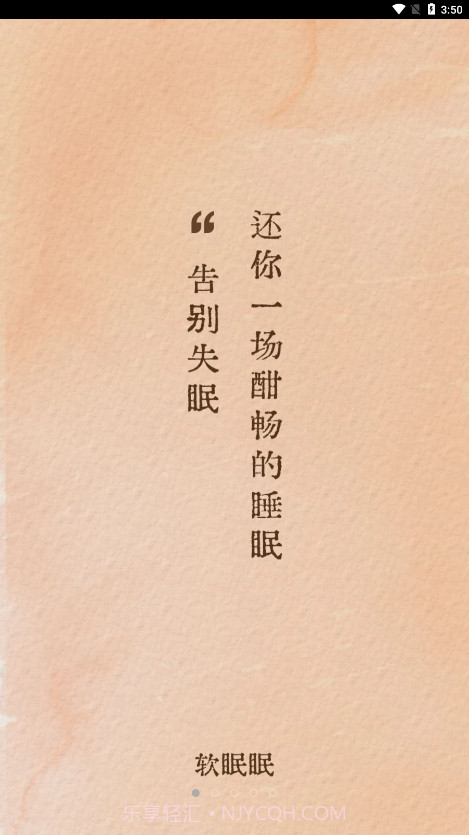 3:50
“告别失眠
还你一场酣畅的睡眠
软眠眠
乐享轻汇·NJYCQH.COM